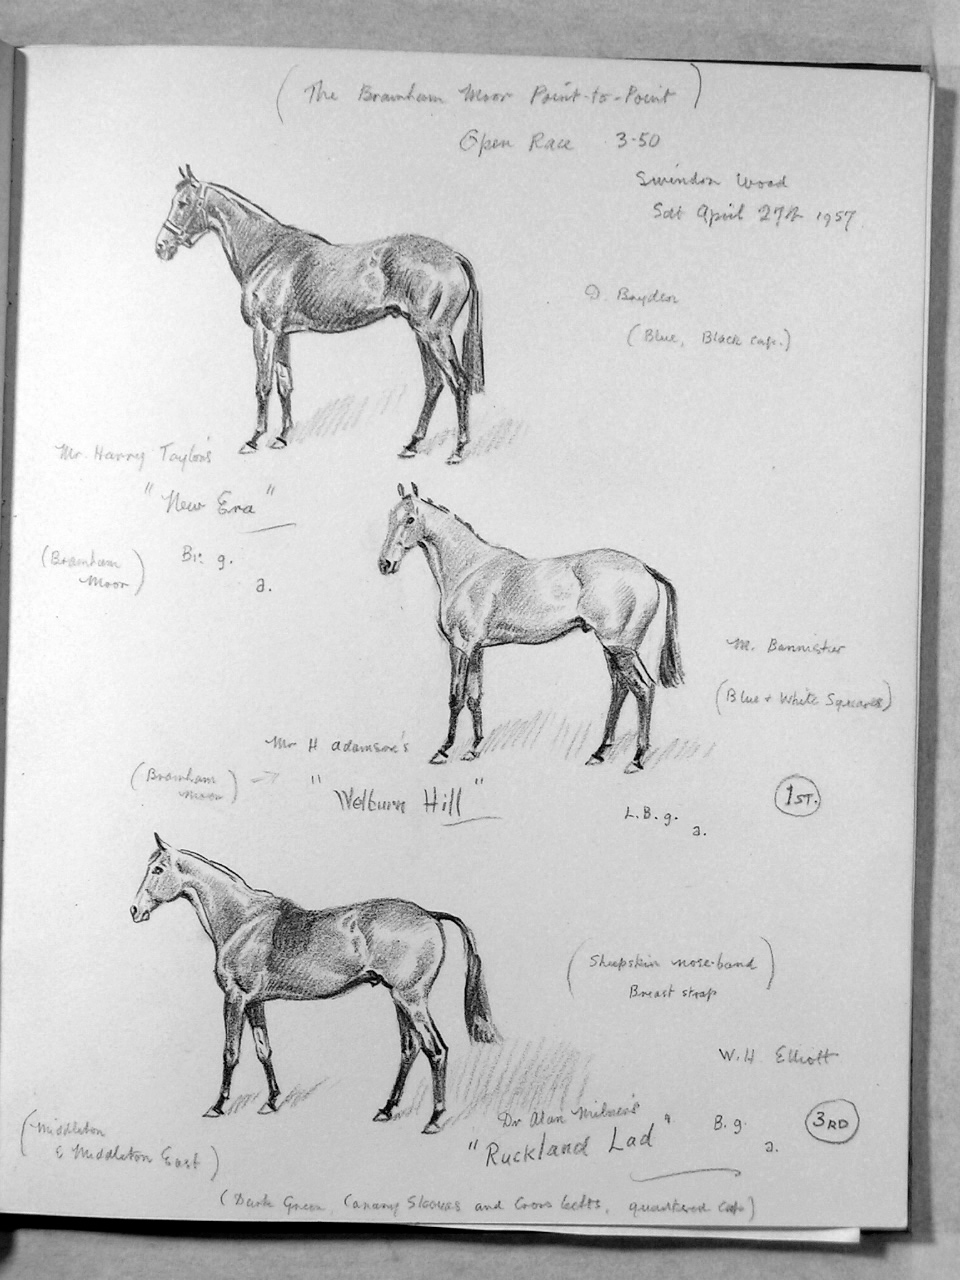 (The Bramham Moor Point-to-Point)
Open Race 3-50
Swindon Wood
Sat April 27th 1957.
D. Boyden
(Blue, Black cap.)
Mr. Harry Taylor's
"New Era"
(Bramham Moor)
Br. g.
a.
M. Bannister
(Blue & White Squares)
Mr H Adamson's
(Bramham Moor)
"Welburn Hill"
L.B. g.
a.
1ST.
(Sheepskin nose-band)
Breast strap
W.H Elliott
Dr Alan Milner's
"Ruckland Lad"
B. g.
a.
3RD
(Middleton
& Middleton East)
(Dark Green, Canary Sleeves and Cross belts, quartered cap)